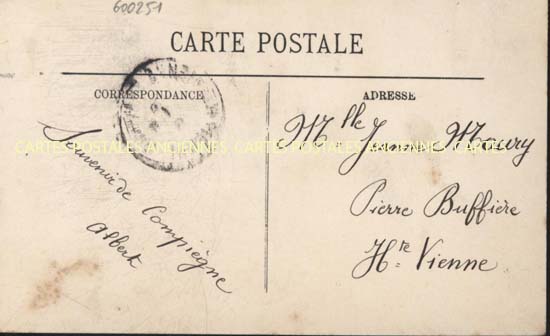 600251
CARTE POSTALE
CORRESPONDANCE
ADRESSE
Souvenir de Compiègne
Albert
Mlle Jeanne Maury
Pierre Buffière
Hte Vienne
CARTES POSTALES ANCIENNES CARTES POSTALES ANCIENNES CARTES POSTALES